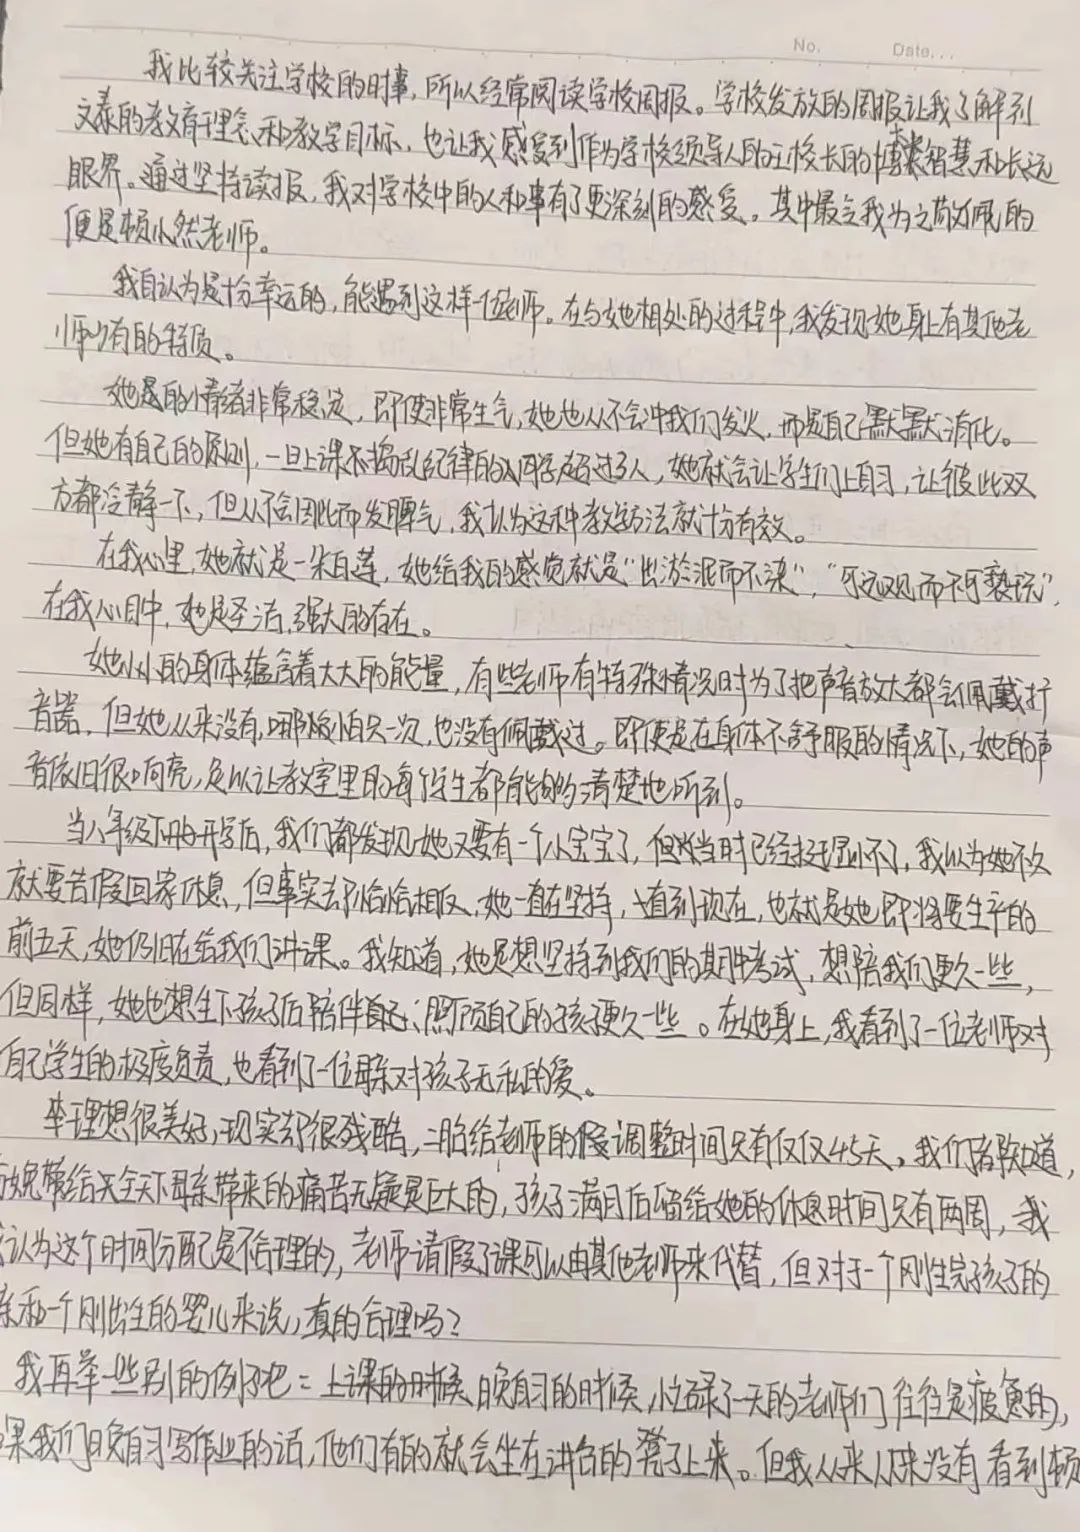 No. Date...
我比较关注学校的时事,所以经常阅读学校周报。学校发放的周报让我了解到
文泰的教育理念和教学目标,也让我感受到作为学校领导人的王校长的智慧和长远
眼界。通过坚持读报,我对学校中的人和事有了更深刻的感受。其中最令我为之敬佩的
便是顿小然老师。
我自认为是十分幸运的,能遇到这样一位老师。在与她相处的过程中,我发现她身上有其他老
师少有的特质。
她是的情绪非常稳定,即使非常生气,她也从不会冲我们发火,而是自己默默消化。
但她有自己的原则,一旦上课不捣乱纪律的同学超过3人,她就会让学生们上自习,让彼此双
方都冷静一下,但从不会因此而发脾气,我认为这种教学方法就十分有效。
在我心里,她就是一朵白莲,她给我的感觉就是“出淤泥而不染”,“可远观而不可亵玩”,
在我心目中,她是圣洁,强大的存在。
她小小的身体蕴含着大大的能量,有些老师有特殊情况时为了把声音放大都会佩戴扩
音器,但她从来没有,哪怕只一次,也没有佩戴过。即便是在身体不舒服的情况下,她的声
音依旧很响亮,足以让教室里的每个学生都能够清楚地听到。
当八年级下册开学后,我们都发现她又要有一个小宝宝了,但当时已经挺显怀了,我以为她不久
就要告假回家休息,但事实却恰恰相反,她一直在坚持,一直到现在,也就是她即将要生产的
前五天,她仍旧在给我们讲课。我知道,她是想坚持到我们的期中考试,想陪我们更久一些,
但同样,她也想生下孩子后陪伴自己、照顾自己的孩子更久一些。在她身上,我看到了一位老师对
自己学生的极度负责,也看到了一位母亲对孩子无私的爱。
理想很美好,现实却很残酷,二胎给老师的假调整时间只有仅仅45天。我们都知道,
分娩带给天全天下母亲带来的痛苦无疑是巨大的,孩子满月后留给她的休息时间只有两周,我
认为这个时间分配是不合理的,老师请假了课可以由其他老师来代替,但对于一个刚生完孩子的
亲和一个刚出生的婴儿来说,真的合理吗?
我再举一些别的例子吧:上课的时候、晚自习的时候,忙碌了一天的老师们往往是疲惫的,
果我们晚自习写作业的话,他们有的就会坐在讲台的凳子上来。但我从来从来没有看到顿